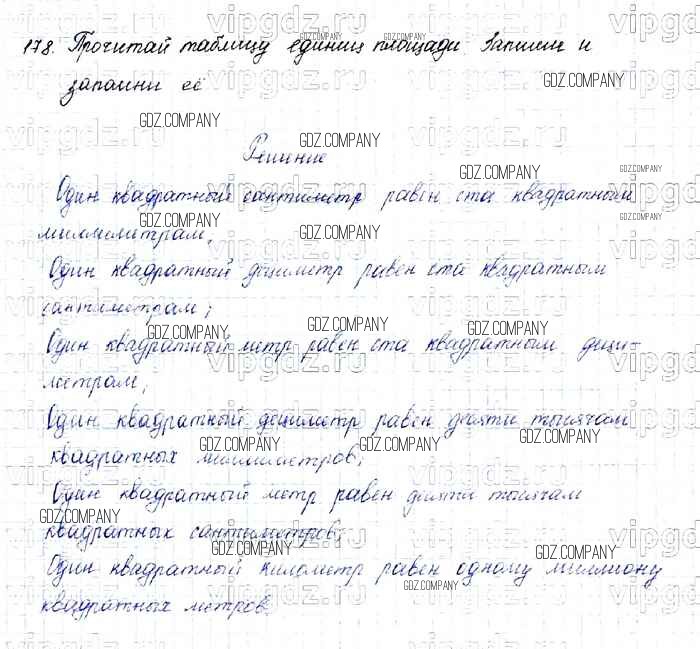 178. Прочитай таблицу единиц площади. Запиши и
запомни её
Решение
Один квадратный сантиметр равен ста квадратным
миллиметрам;
Один квадратный дециметр равен ста квадратным
сантиметрам;
Один квадратный метр равен ста квадратным деци-
метрам;
Один квадратный дециметр равен десяти тысячам
квадратных миллиметров;
Один квадратный метр равен десяти тысячам
квадратных сантиметров;
Один квадратный километр равен одному миллиону
квадратных метров.